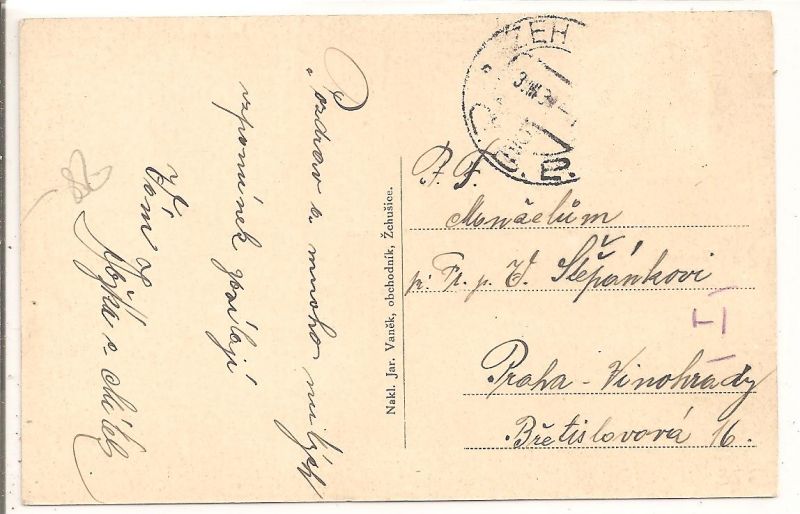 Pozdrav a mnoho milých
vzpomínek posílají
Vám
Nakl. Jar. Vaněk, obchodník, Žehušice.
ŽEH
3.
P. T.
Manželům
Štěpánkovi
Praha - Vinohrady
Břetislavová 16.
I